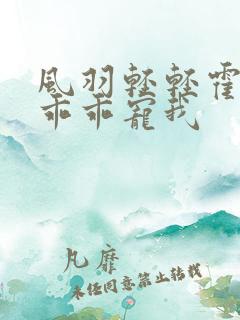 風羽輕輕霍
乖乖寵我
凡靡
未经同意禁止转载